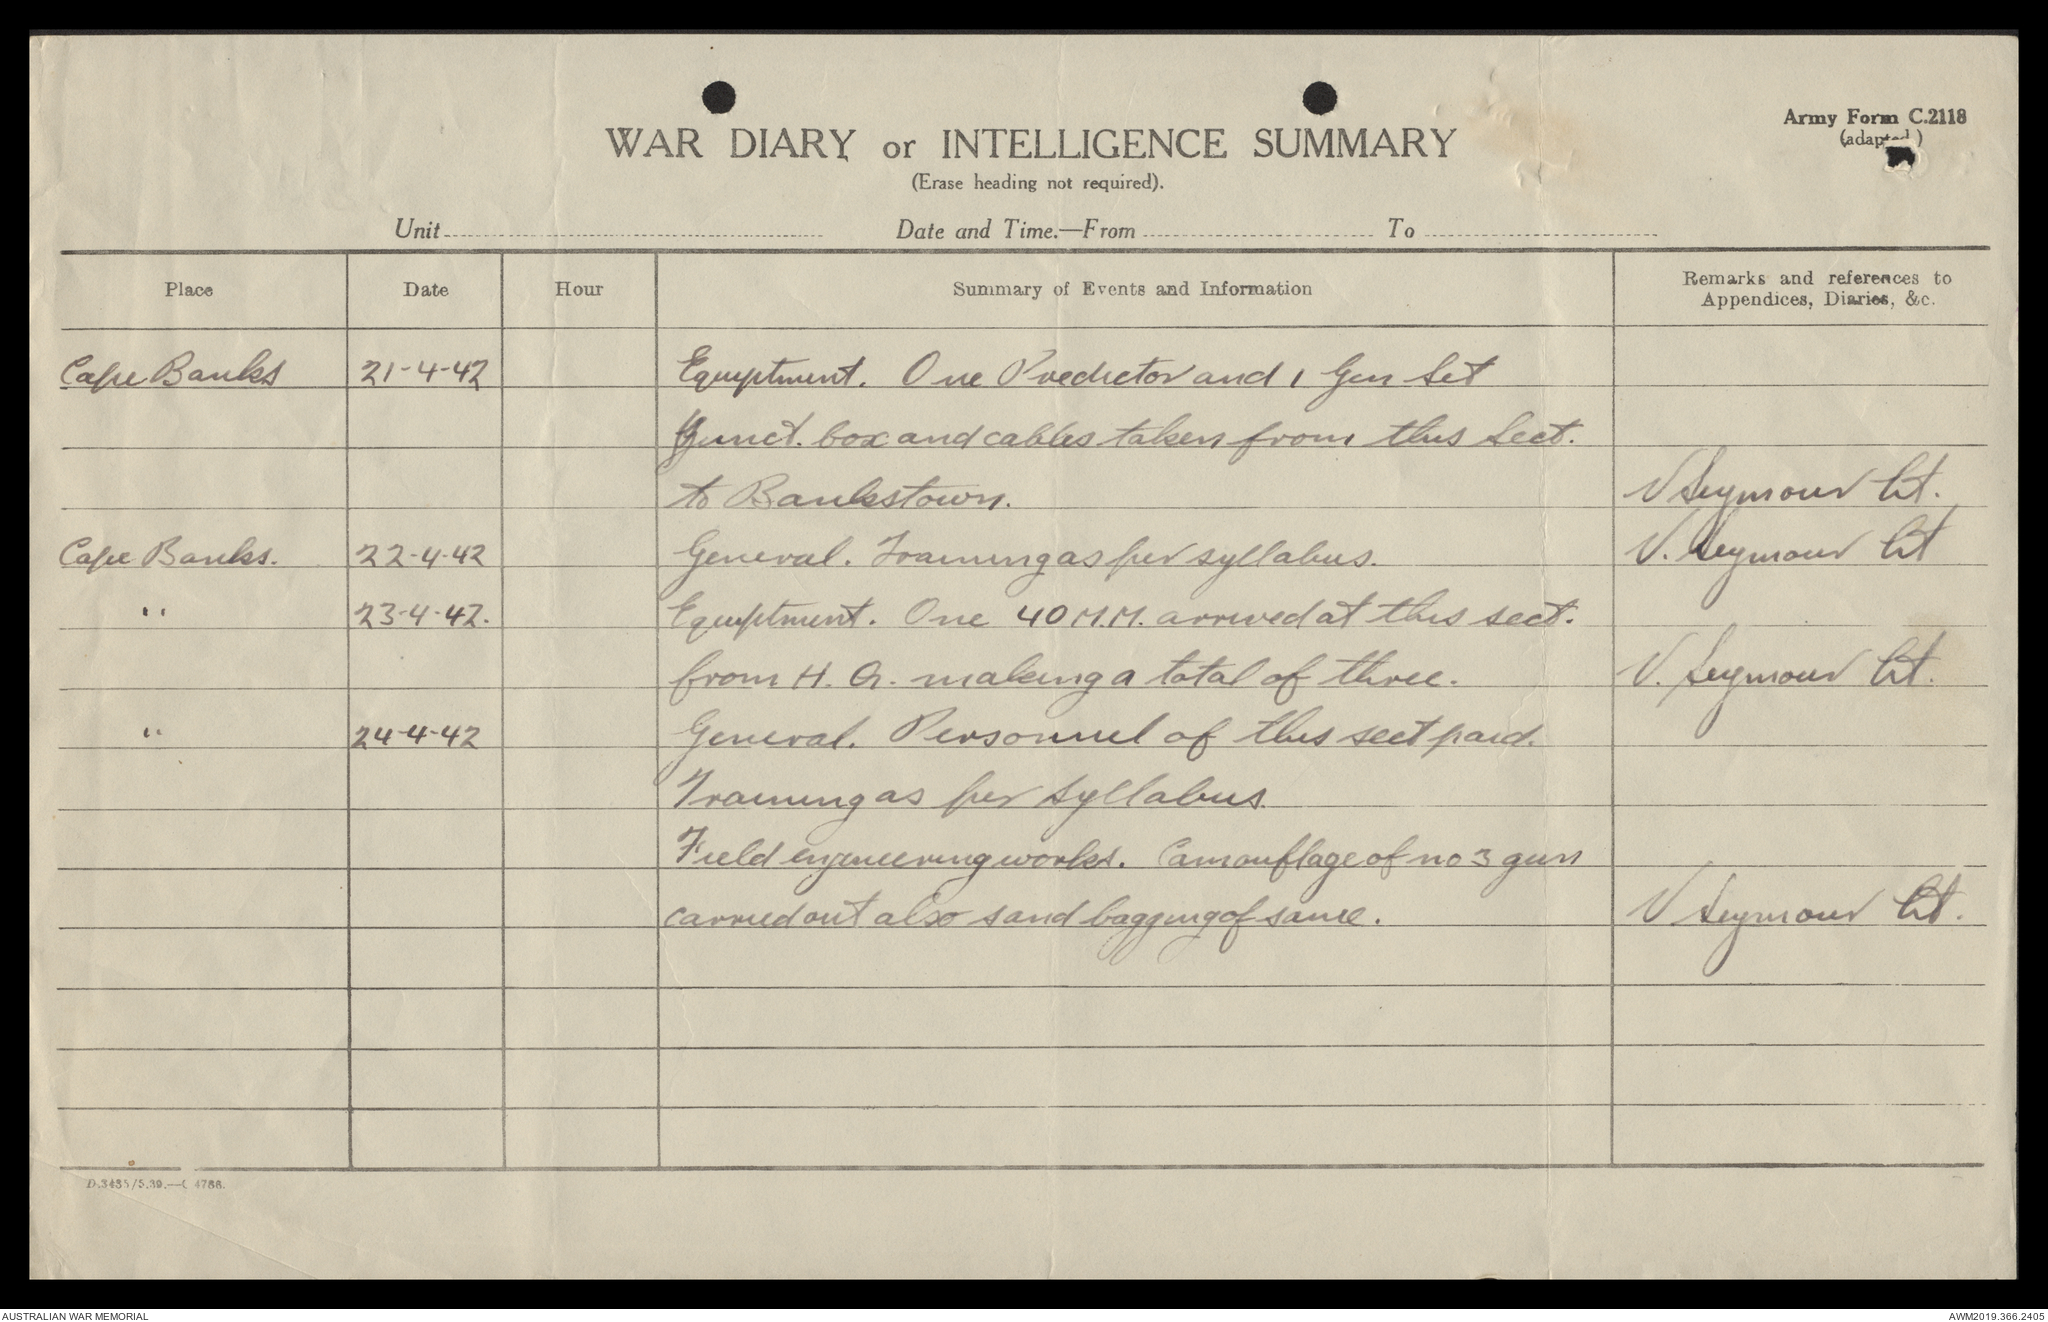 Army Form C.2118
(adapted)
WAR DIARY or INTELLIGENCE SUMMARY
(Erase heading not required).
Unit Date and Time.—From To
Place Date Hour Summary of Events and Information Remarks and references to
Appendices, Diaries, &c.
Cape Banks 21-4-42 Equiptment. One Predictor and 1 Gen Set
Junct. box and cables taken from this Sect.
to Bankstown. V Seymour Lt.
Cape Banks. 22-4-42 General. Training as per syllabus. V. Seymour Lt
" 23-4-42. Equiptment. One 40 M.M. arrived at this sect.
from H. Q. making a total of three. V. Seymour Lt.
" 24-4-42 General. Personnel of this sect paid.
Training as per syllabus.
Field engineering works. Camouflage of no 3 gun
carried out also sand bagging of same. V Seymour Lt.
D.3435/5.39.—C 4786.
AUSTRALIAN WAR MEMORIAL AWM2019.366.2405